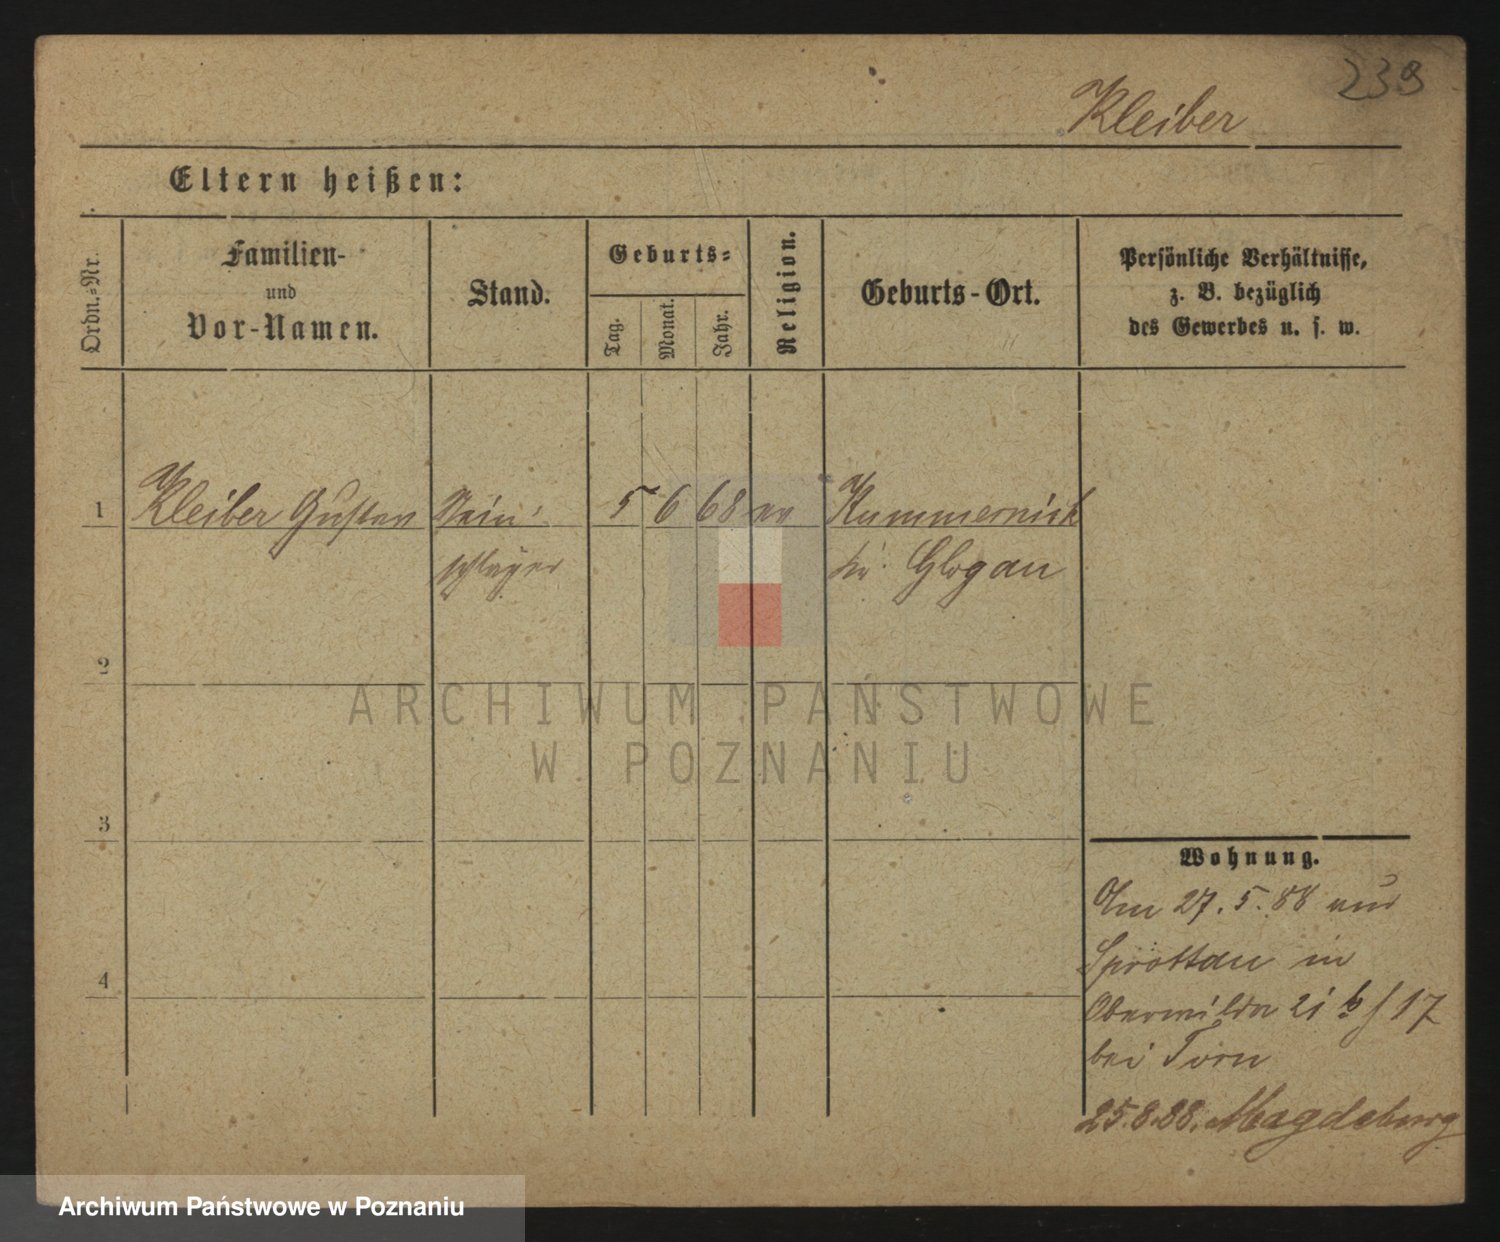 239
Kleiber
Eltern heißen:
Ordn.-Nr.
Familien-
und
Vor-Namen.
Stand.
Geburts-
Tag.
Monat.
Jahr.
Religion.
Geburts-Ort.
Persönliche Verhältnisse,
z. B. bezüglich
des Gewerbes u. s. w.
1 Kleiber Gustav Stein- 5 6 68 ev Kummernick
schläger Kr. Glogau
2
3
4
Wohnung.
Am 27. 5. 88 aus
Sprottau in
Oberwilda 21
bei Torn
25.8.88. Magdeburg
ARCHIWUM PAŃSTWOWE
W POZNANIU
Archiwum Państwowe w Poznaniu